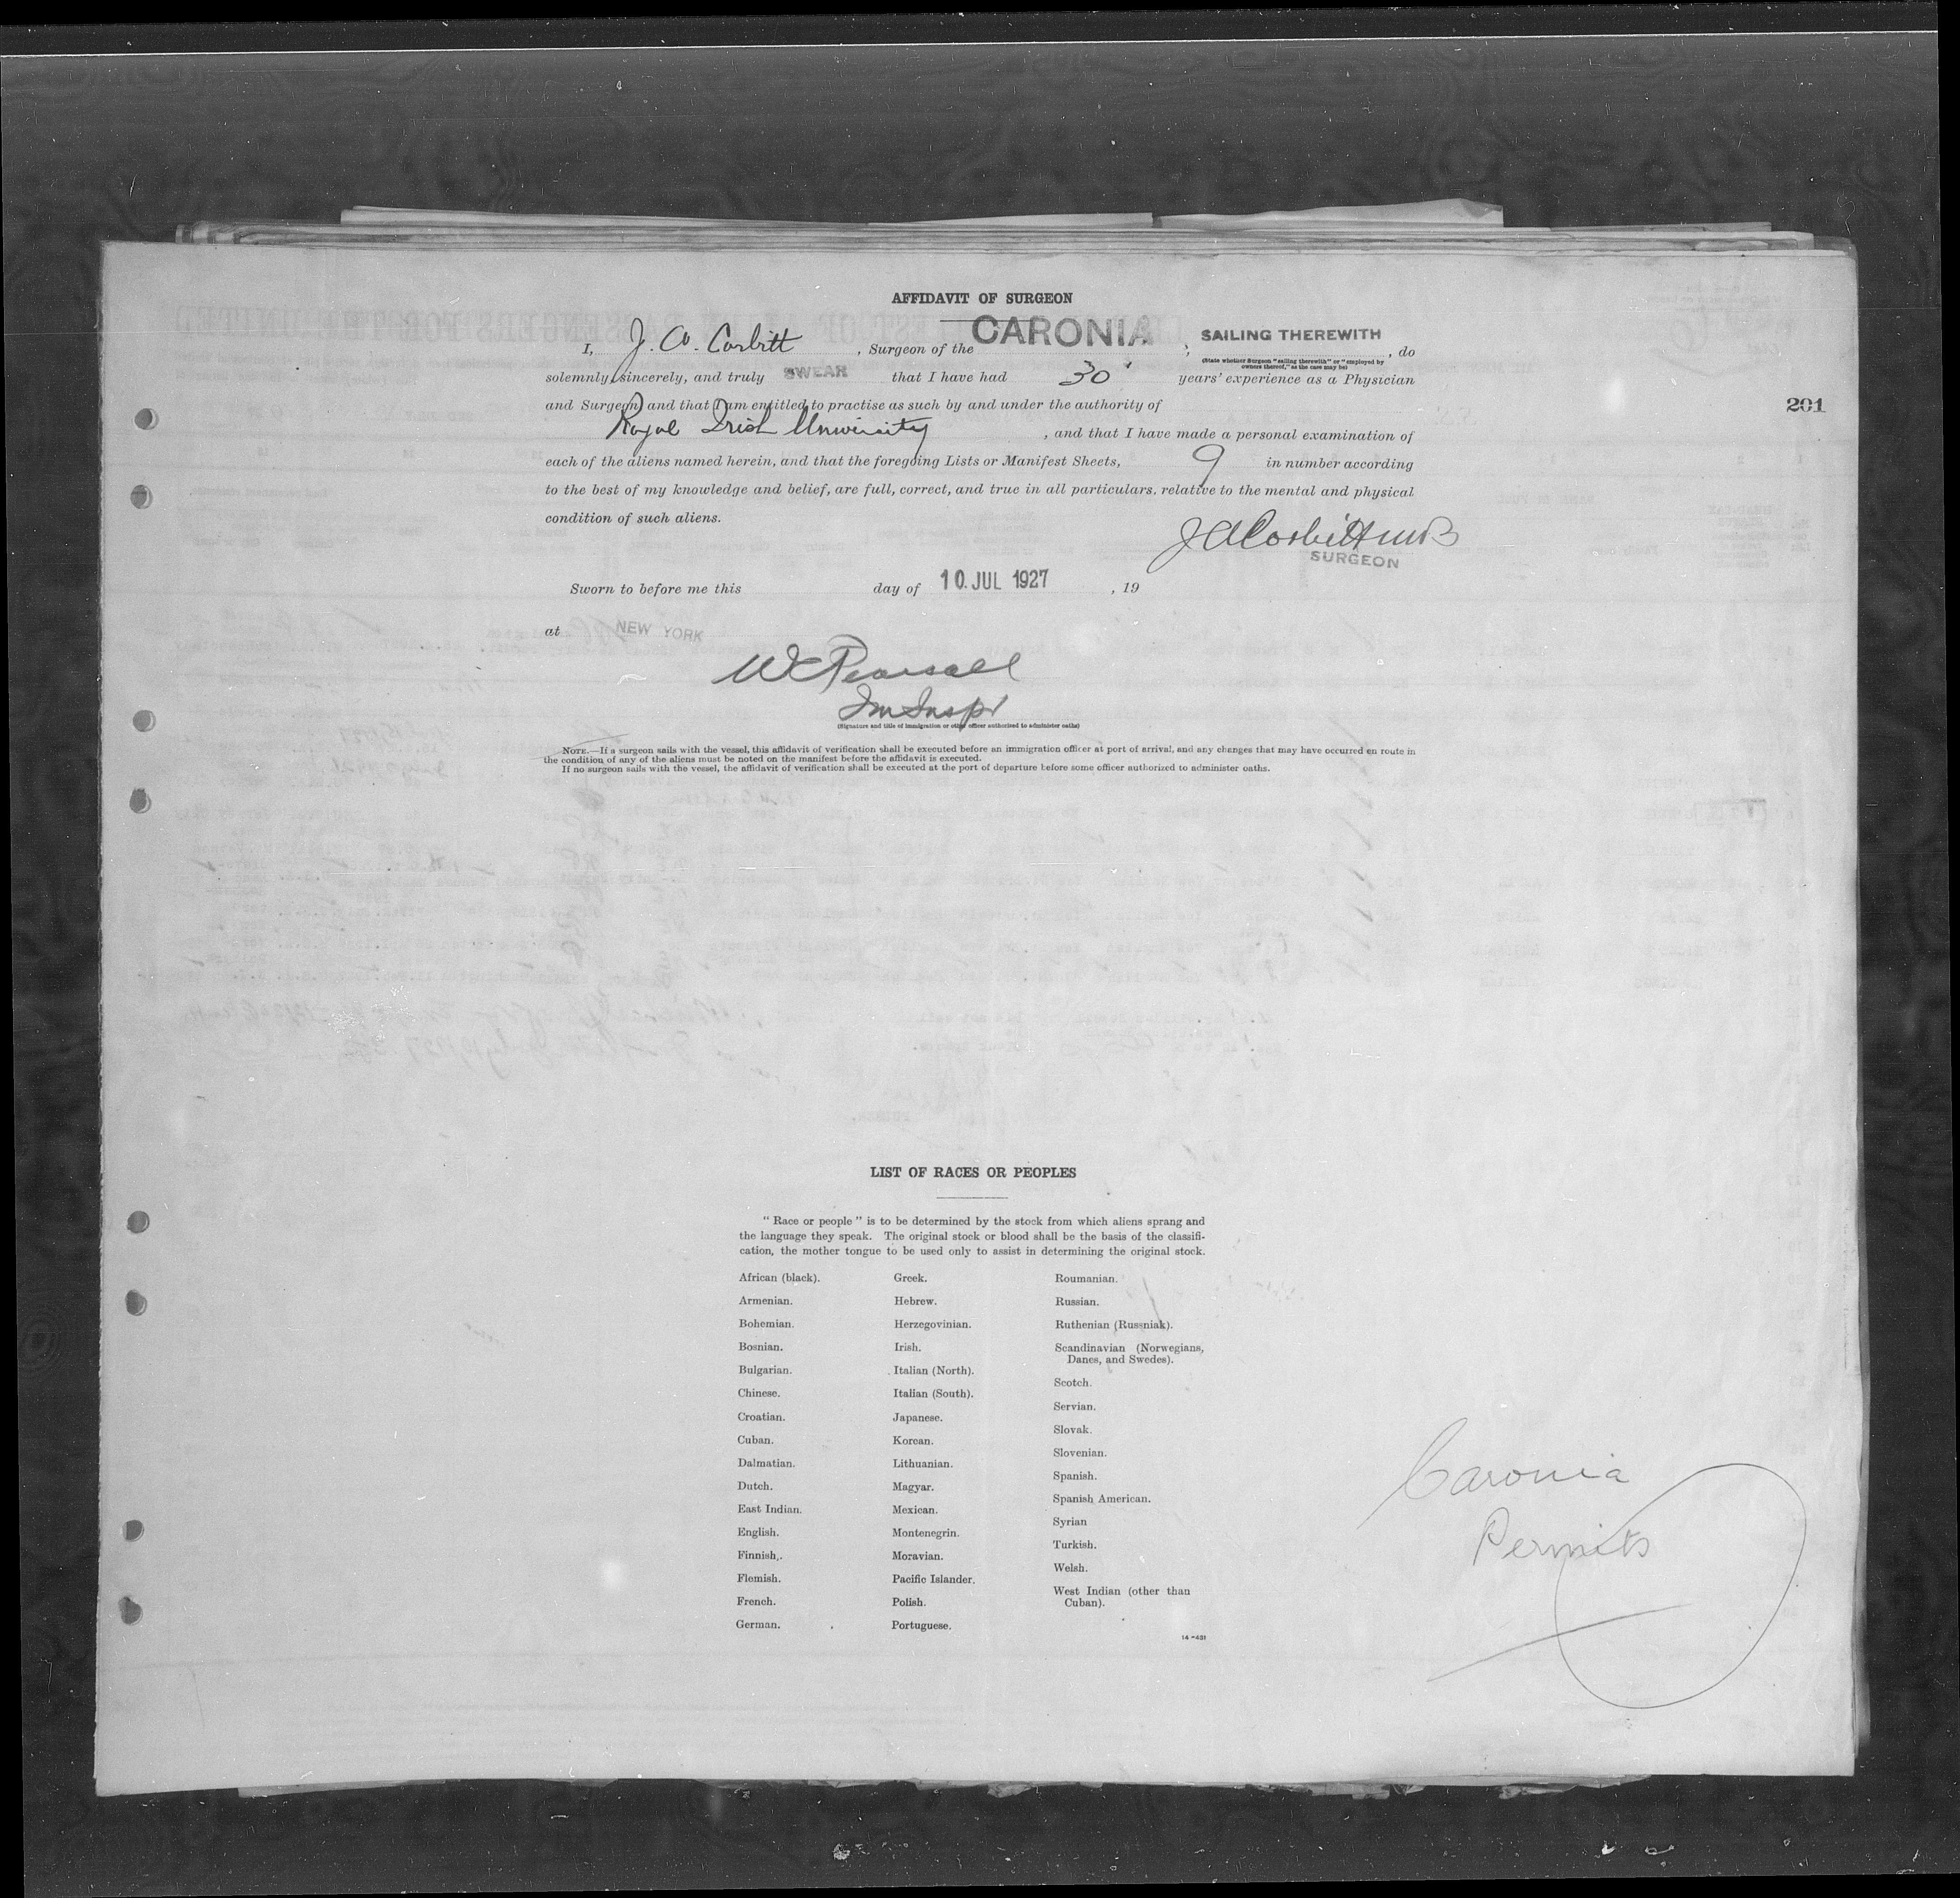 AFFIDAVIT OF SURGEON
I, J. A. Corbitt, Surgeon of the CARONIA ; SAILING THEREWITH, do
(State whether Surgeon "sailing therewith" or "employed by
owners thereof," as the case may be)
solemnly, sincerely, and truly SWEAR that I have had 30 years' experience as a Physician
and Surgeon, and that I am entitled to practise as such by and under the authority of
201
Royal Irish University, and that I have made a personal examination of
each of the aliens named herein, and that the foregoing Lists or Manifest Sheets, 9 in number according
to the best of my knowledge and belief, are full, correct, and true in all particulars, relative to the mental and physical
condition of such aliens.
J A Corbitt MB
SURGEON
Sworn to before me this day of 10. JUL 1927, 19
at NEW YORK
W C Pearsall
Im Inspr
(Signature and title of immigration or other officer authorized to administer oaths)
NOTE.—If a surgeon sails with the vessel, this affidavit of verification shall be executed before an immigration officer at port of arrival, and any changes that may have occurred en route in
the condition of any of the aliens must be noted on the manifest before the affidavit is executed.
If no surgeon sails with the vessel, the affidavit of verification shall be executed at the port of departure before some officer authorized to administer oaths.
LIST OF RACES OR PEOPLES
"Race or people" is to be determined by the stock from which aliens sprang and
the language they speak. The original stock or blood shall be the basis of the classifi-
cation, the mother tongue to be used only to assist in determining the original stock.
African (black).
Armenian.
Bohemian.
Bosnian.
Bulgarian.
Chinese.
Croatian.
Cuban.
Dalmatian.
Dutch.
East Indian.
English.
Finnish.
Flemish.
French.
German.
Greek.
Hebrew.
Herzegovinian.
Irish.
Italian (North).
Italian (South).
Japanese.
Korean.
Lithuanian.
Magyar.
Mexican.
Montenegrin.
Moravian.
Pacific Islander.
Polish.
Portuguese.
Roumanian.
Russian.
Ruthenian (Russniak).
Scandinavian (Norwegians,
Danes, and Swedes).
Scotch.
Servian.
Slovak.
Slovenian.
Spanish.
Spanish American.
Syrian
Turkish.
Welsh.
West Indian (other than
Cuban).
14-431
Caronia
Permits